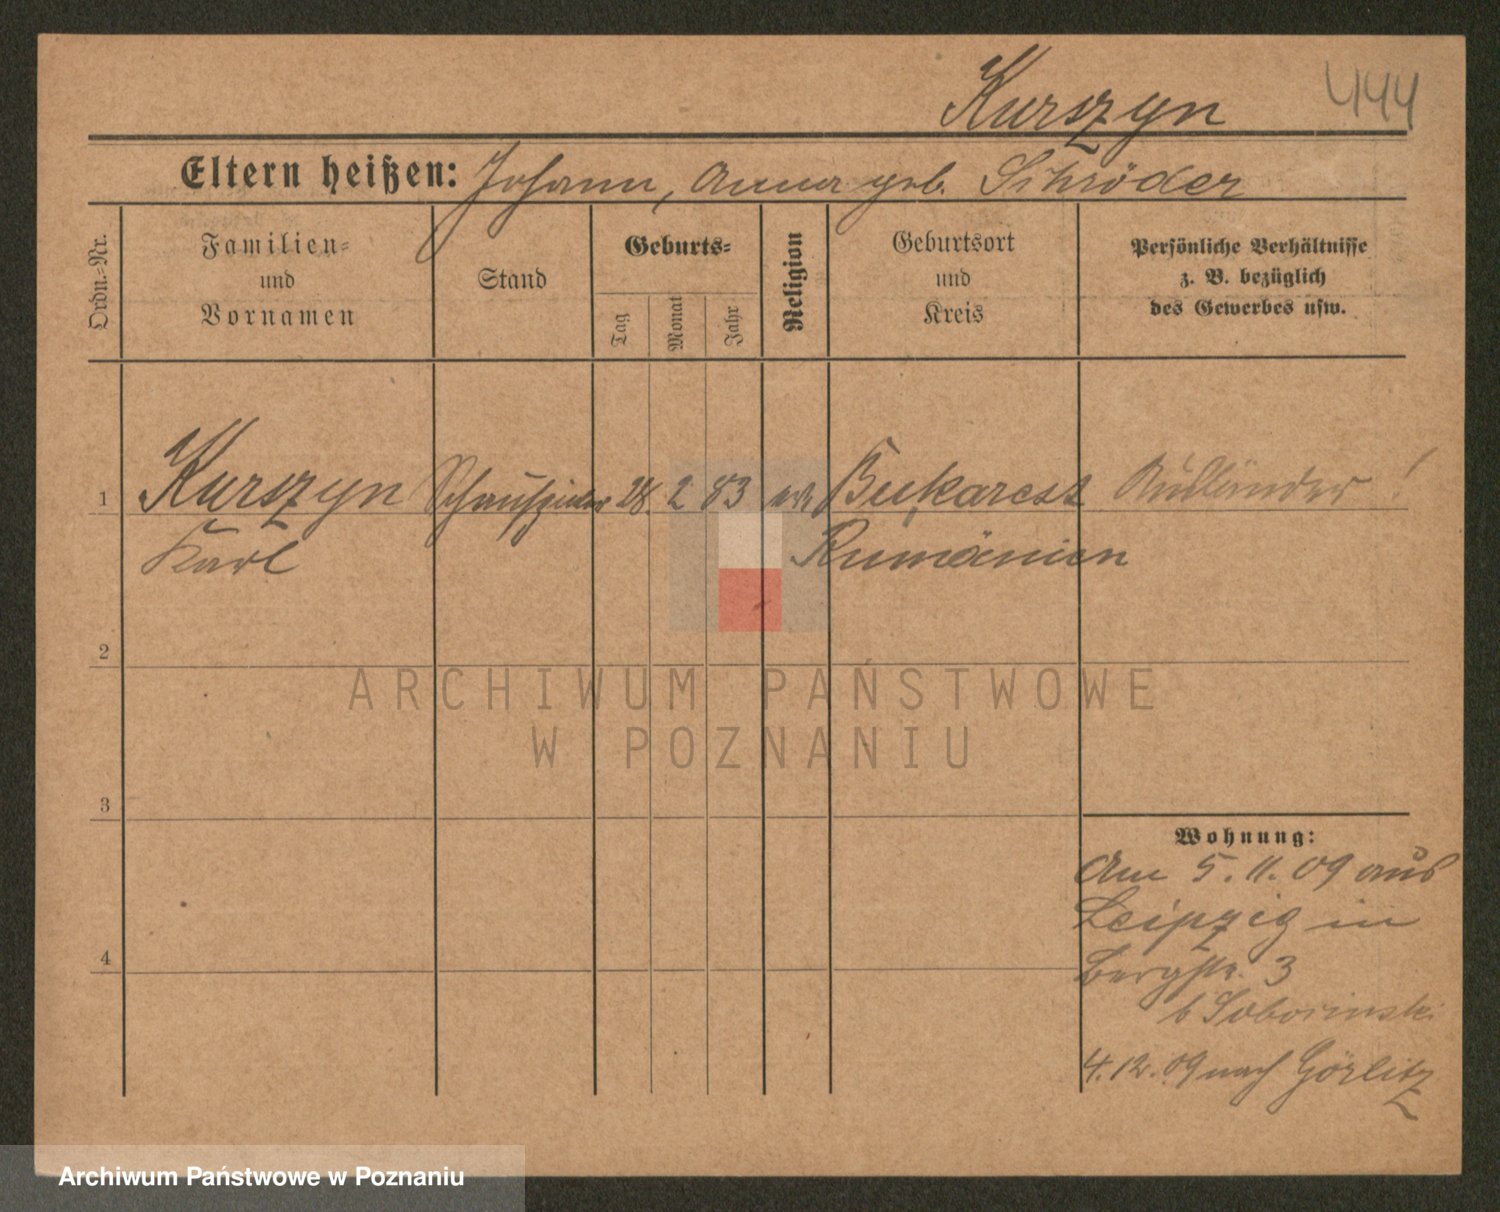 Kurszyn 444
Eltern heißen: Johann, Anna geb. Schröder
Ordn.=Nr.
Familien=
und
Vornamen
Stand
Geburts=
Tag
Monat
Jahr
Religion
Geburtsort
und
Kreis
Persönliche Verhältnisse
z. B. bezüglich
des Gewerbes usw.
1 Kurszyn Schauspieler 28. 2 83 Bukarest Ausländer!
Karl Rumänien
2
ARCHIWUM PAŃSTWOWE
W POZNANIU
3
Wohnung:
Am 5. 11. 09 aus
Leipzig in
Bergstr. 3
4
b
4. 12. 09 nach Görlitz
Archiwum Państwowe w Poznaniu